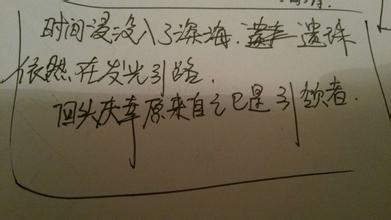 时间浸没入了深海. 遗珠
依然在发光引路.
回头庆幸原来自己是引领者.